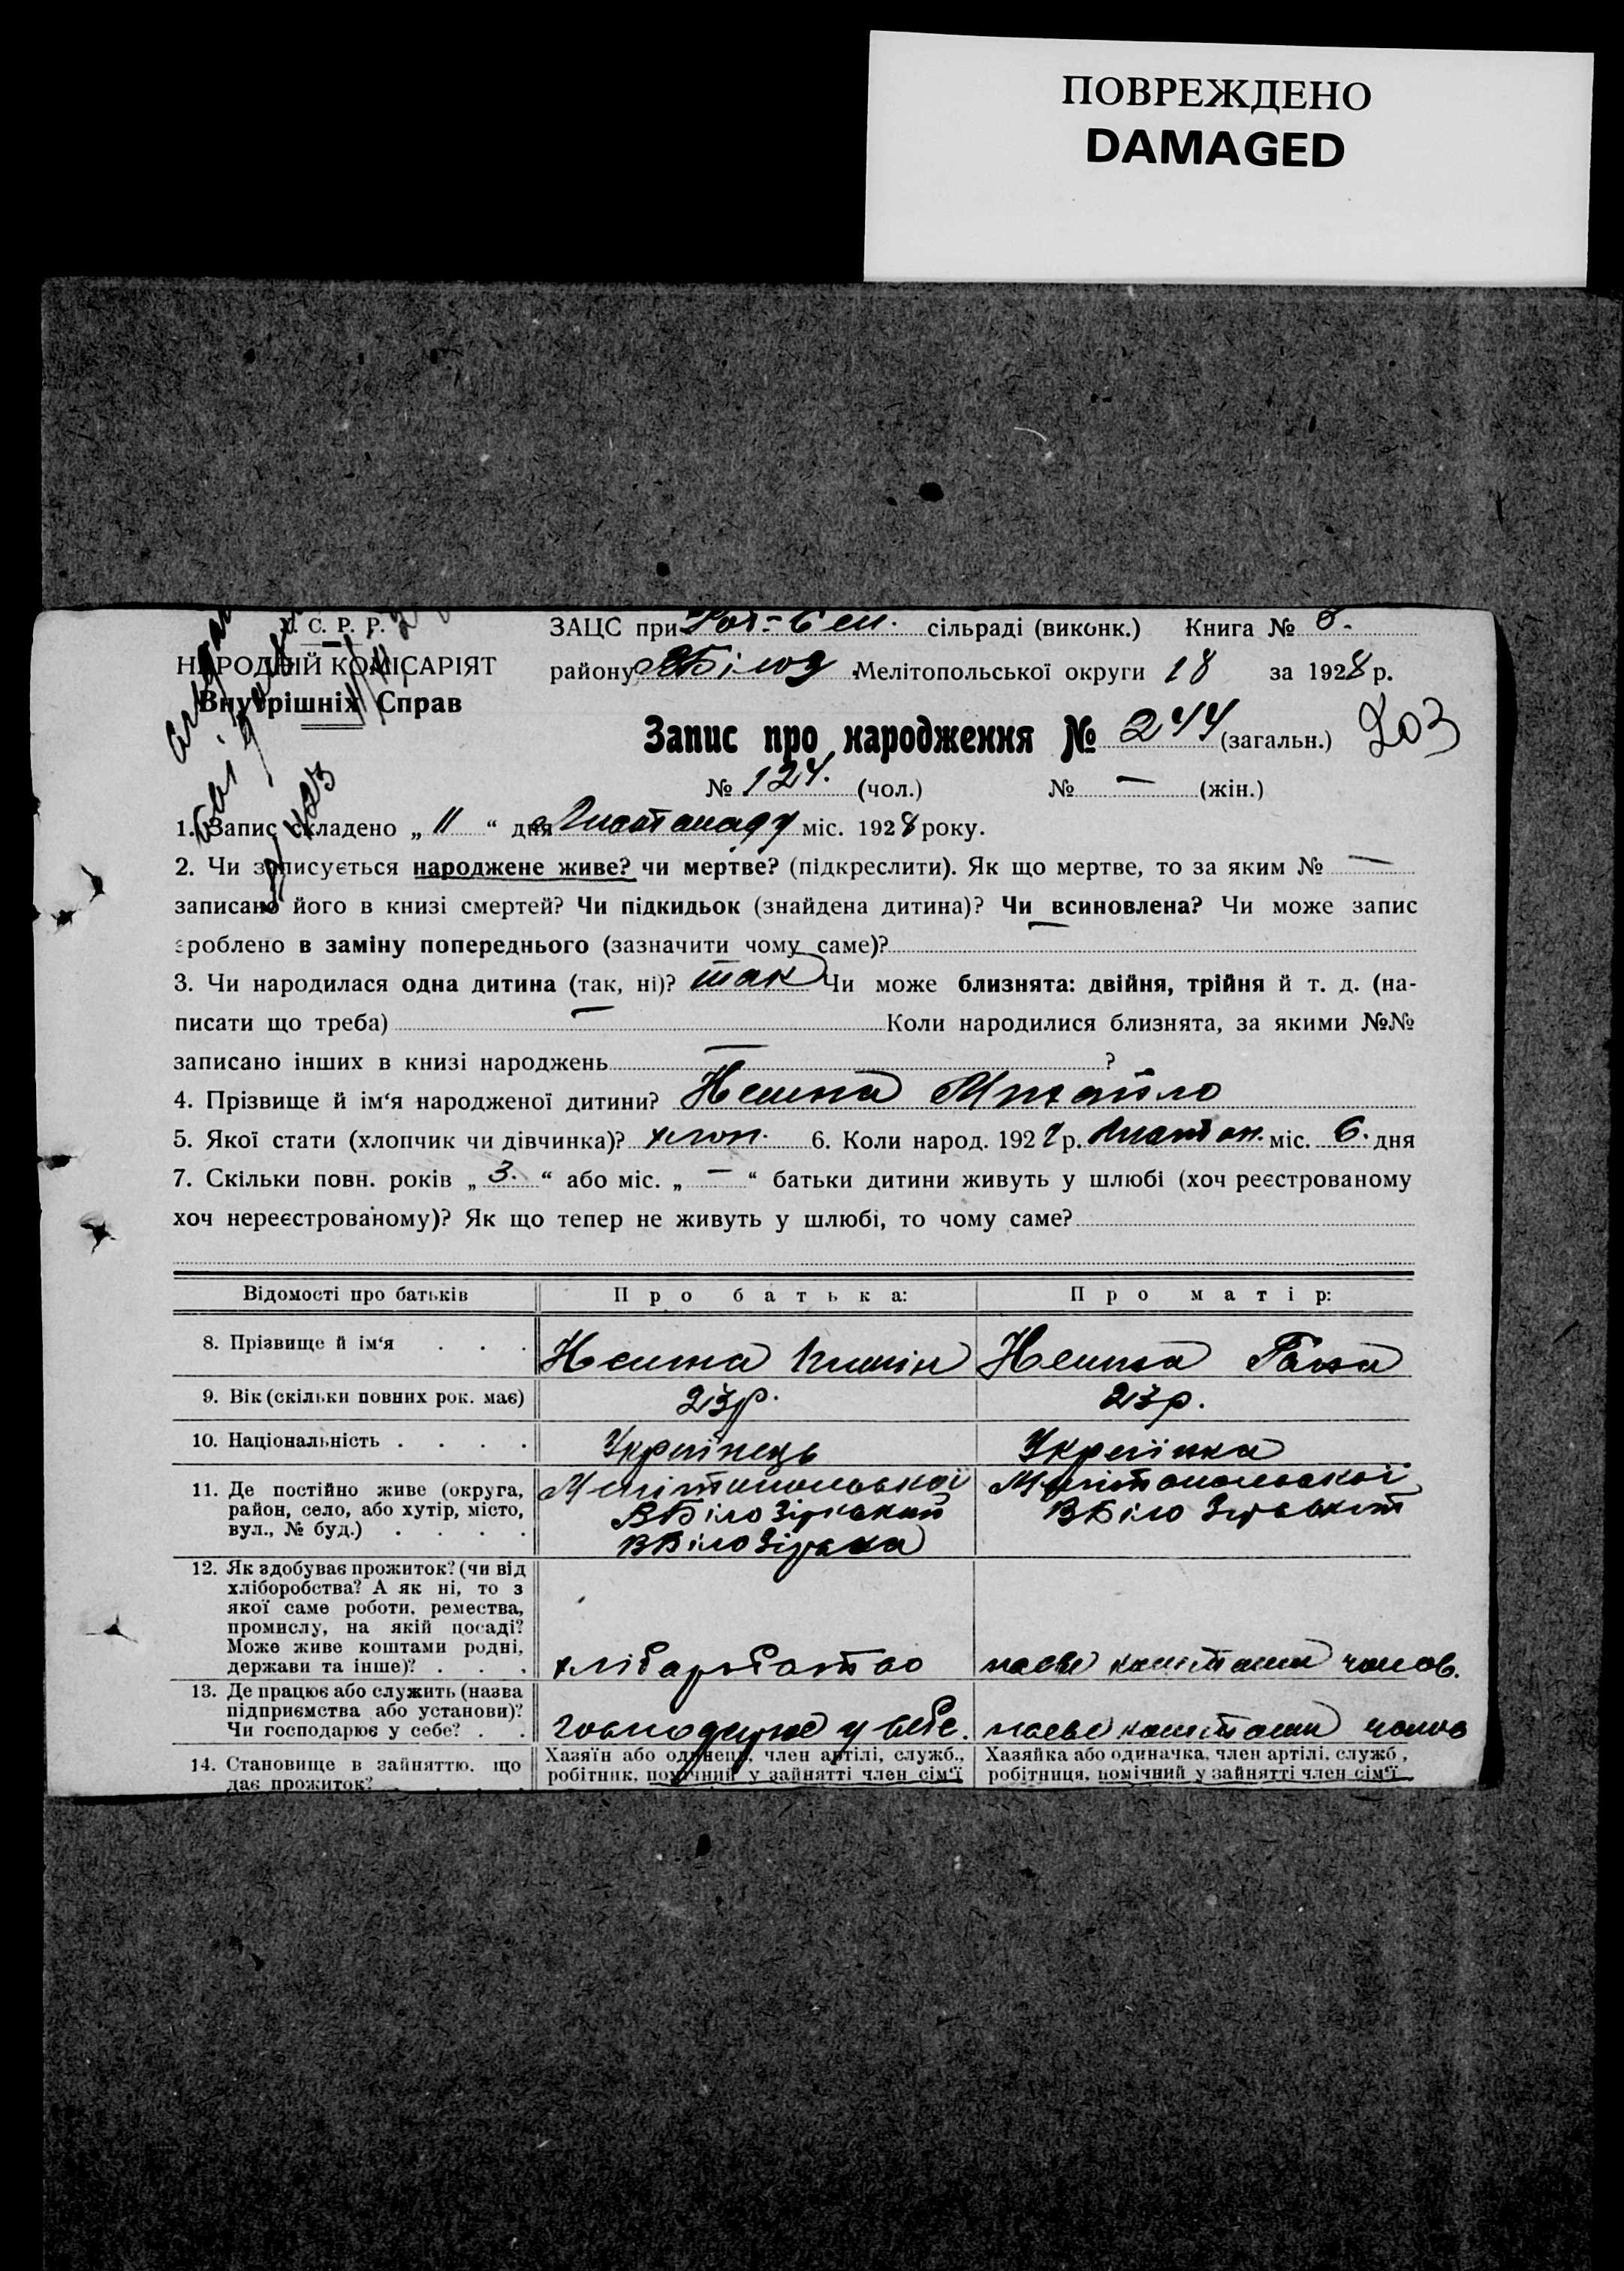 ПОВРЕЖДЕНО
DAMAGED
С. Р. Р.
НАРОДНІЙ КОМІСАРІЯТ
Внутрішніх Справ
ЗАЦС при сільраді (виконк.) Книга №
району Мелітопольської округи 18 за 1928 р.
Запис про народження № 244 (загальн.) 203
№ 124. (чол.) № — (жін.)
1. Запис складено „ 11 “ дня Листопаду міс. 1928 року.
2. Чи записується народжене живе? чи мертве? (підкреслити). Як що мертве, то за яким № —
записано його в книзі смертей? Чи підкидьок (знайдена дитина)? Чи всиновлена? Чи може запис
зроблено в заміну попереднього (зазначити чому саме)?
3. Чи народилася одна дитина (так, ні)? так Чи може близнята: двійня, трійня й т. д. (на-
писати що треба) Коли народилися близнята, за якими №№
записано інших в книзі народжень — ?
4. Прізвище й ім‘я народженої дитини? Михайло
5. Якої стати (хлопчик чи дівчинка)? хлоп. 6. Коли народ. 1928 р. Листоп. міс. 6. дня
7. Скільки повн. років „ 3. “ або міс. „ — “ батьки дитини живуть у шлюбі (хоч реєстрованому
хоч нереєстрованому)? Як що тепер не живуть у шлюбі, то чому саме?
Відомості про батьків Про батька: Про матір:
8. Прізвище й ім‘я . . .
9. Вік (скільки повних рок. має) 23р. 23р.
10. Національність . . . . Українець Українка
11. Де постійно живе (округа,
район, село, або хутір, місто,
вул., № буд.) . . . .
Мелітопольської
ВБілоЗірський
ВБілоЗірка
Мелітопольської
ВБіло Зірський
12. Як здобуває прожиток? (чи від
хліборобства? А як ні, то з
якої саме роботи, ремества,
промислу, на якій посаді?
Може живе коштами родні,
держави та інше)? . . .
хліборобство
коштами чолов.
13. Де працює або служить (назва
підприємства або установи)?
Чи господарює у себе? . .
господарює у себе.
коштами чолов
14. Становище в зайняттю, що
дає прожиток? . . .
Хазяїн або одинець, член артілі, служб.,
робітник, помічний у зайнятті член сім‘ї
Хазяйка або одиначка, член артілі, служб ,
робітниця, помічний у зайнятті член сім‘ї